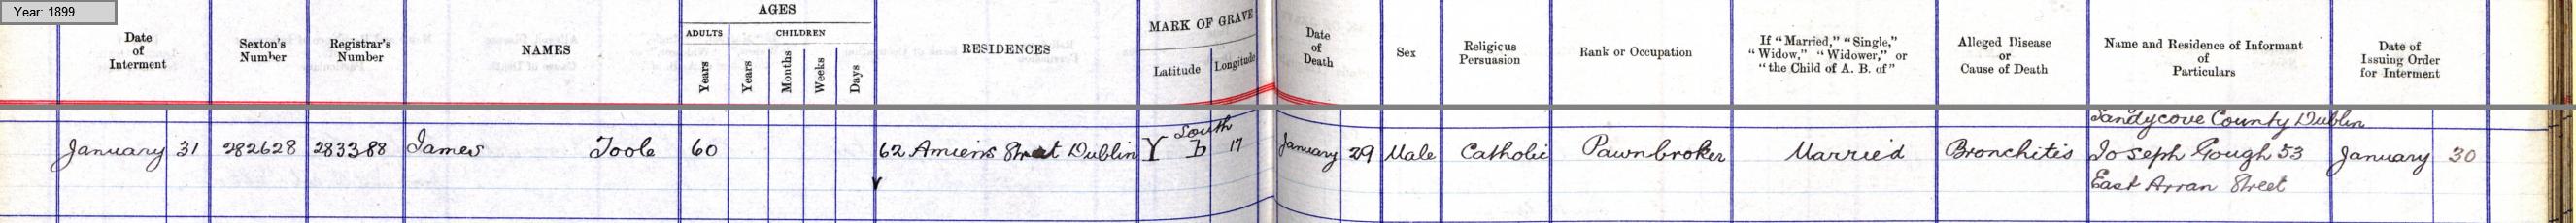 Year: 1899
Date of Interment
Sexton's Number
Registrar's Number
NAMES
AGES
ADULTS
CHILDREN
Years
Years
Months
Weeks
Days
RESIDENCES
MARK OF GRAVE
Latitude
Longitude
Date of Death
Sex
Religious Persuasion
Rank or Occupation
If "Married," "Single," "Widow," "Widower," or "the Child of A. B. of"
Alleged Disease or Cause of Death
Name and Residence of Informant of Particulars
Date of Issuing Order for Interment
Sandycove County Dublin
January 31 282628 283388 James Toole 60 62 Amiens Street Dublin Y South 17 January 29 Male Catholic Pawnbroker Married Bronchitis Joseph Gough 53 January 30
East Arran Street